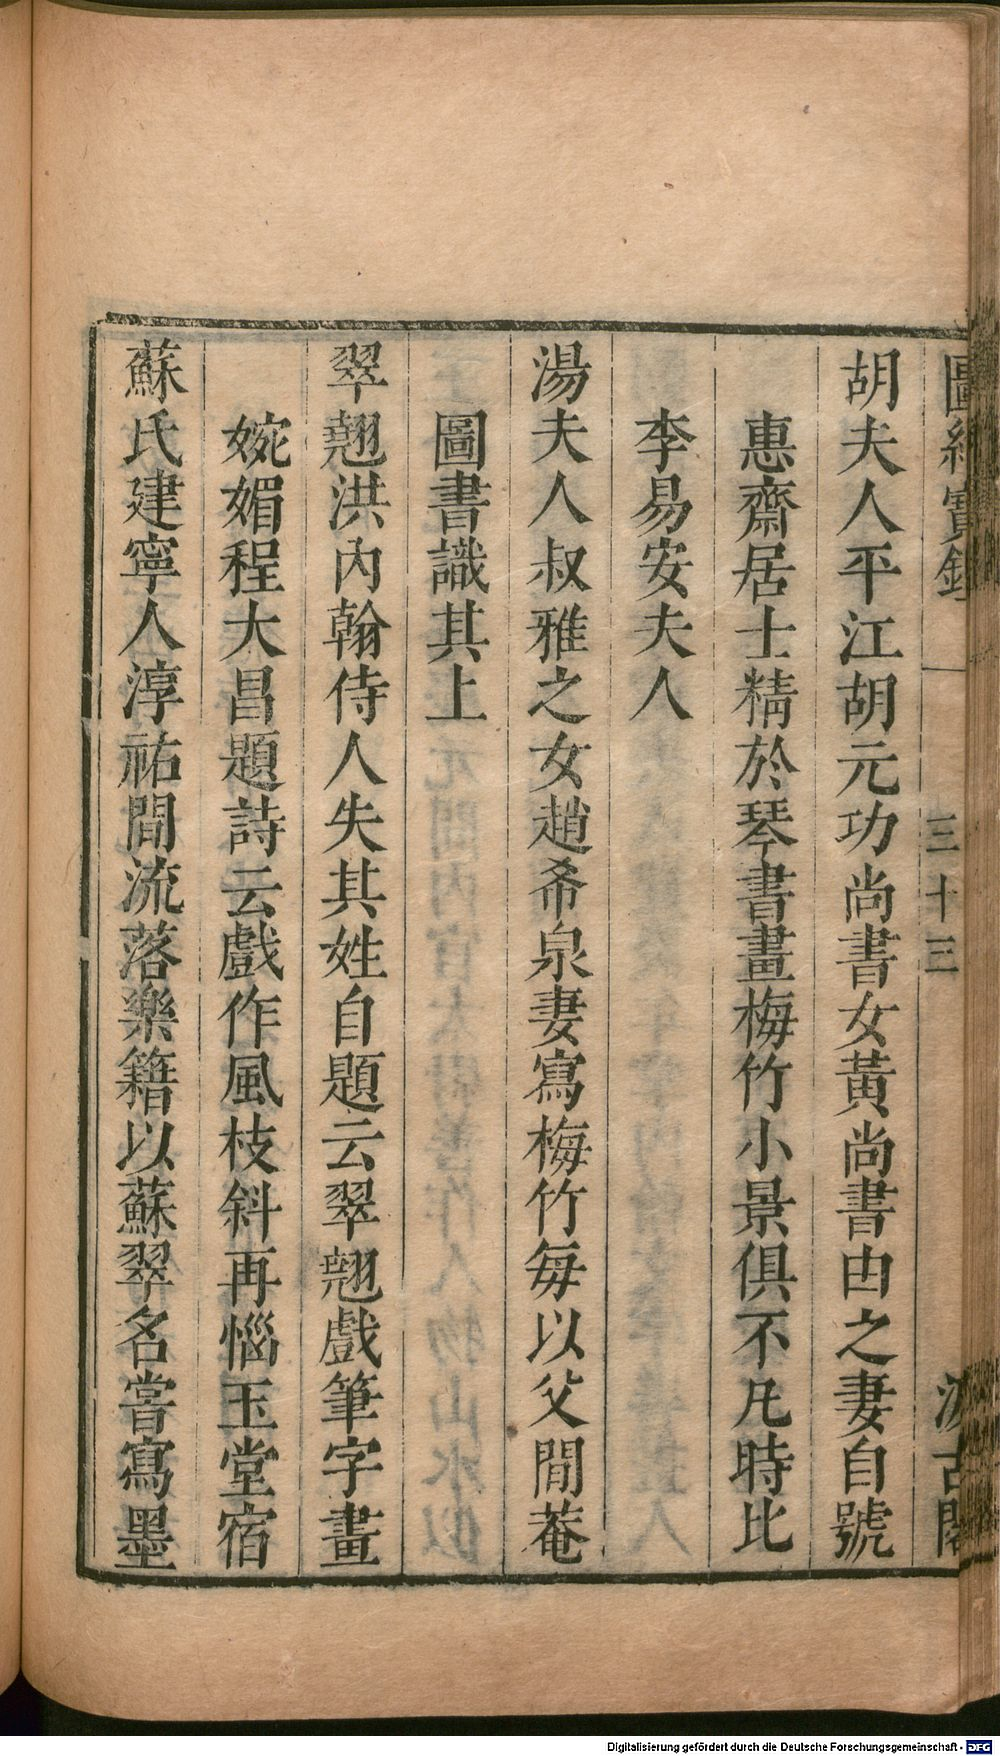 圖繪寶鑑
三十三
汲古閣
胡夫人平江胡元功尚書女黃尚書由之妻自號
惠齋居士精於琴書畫梅竹小景俱不凡時比
李易安夫人
湯夫人叔雅之女趙希泉妻寫梅竹每以父閒菴
圖書識其上
翠翹洪內翰侍人失其姓自題云翠翹戲筆字畫
婉媚程大昌題詩云戲作風枝斜再惱玉堂宿
蘇氏建寧人淳祐間流落樂籍以蘇翠名嘗寫墨
Digitalisierung gefördert durch die Deutsche Forschungsgemeinschaft - DFG